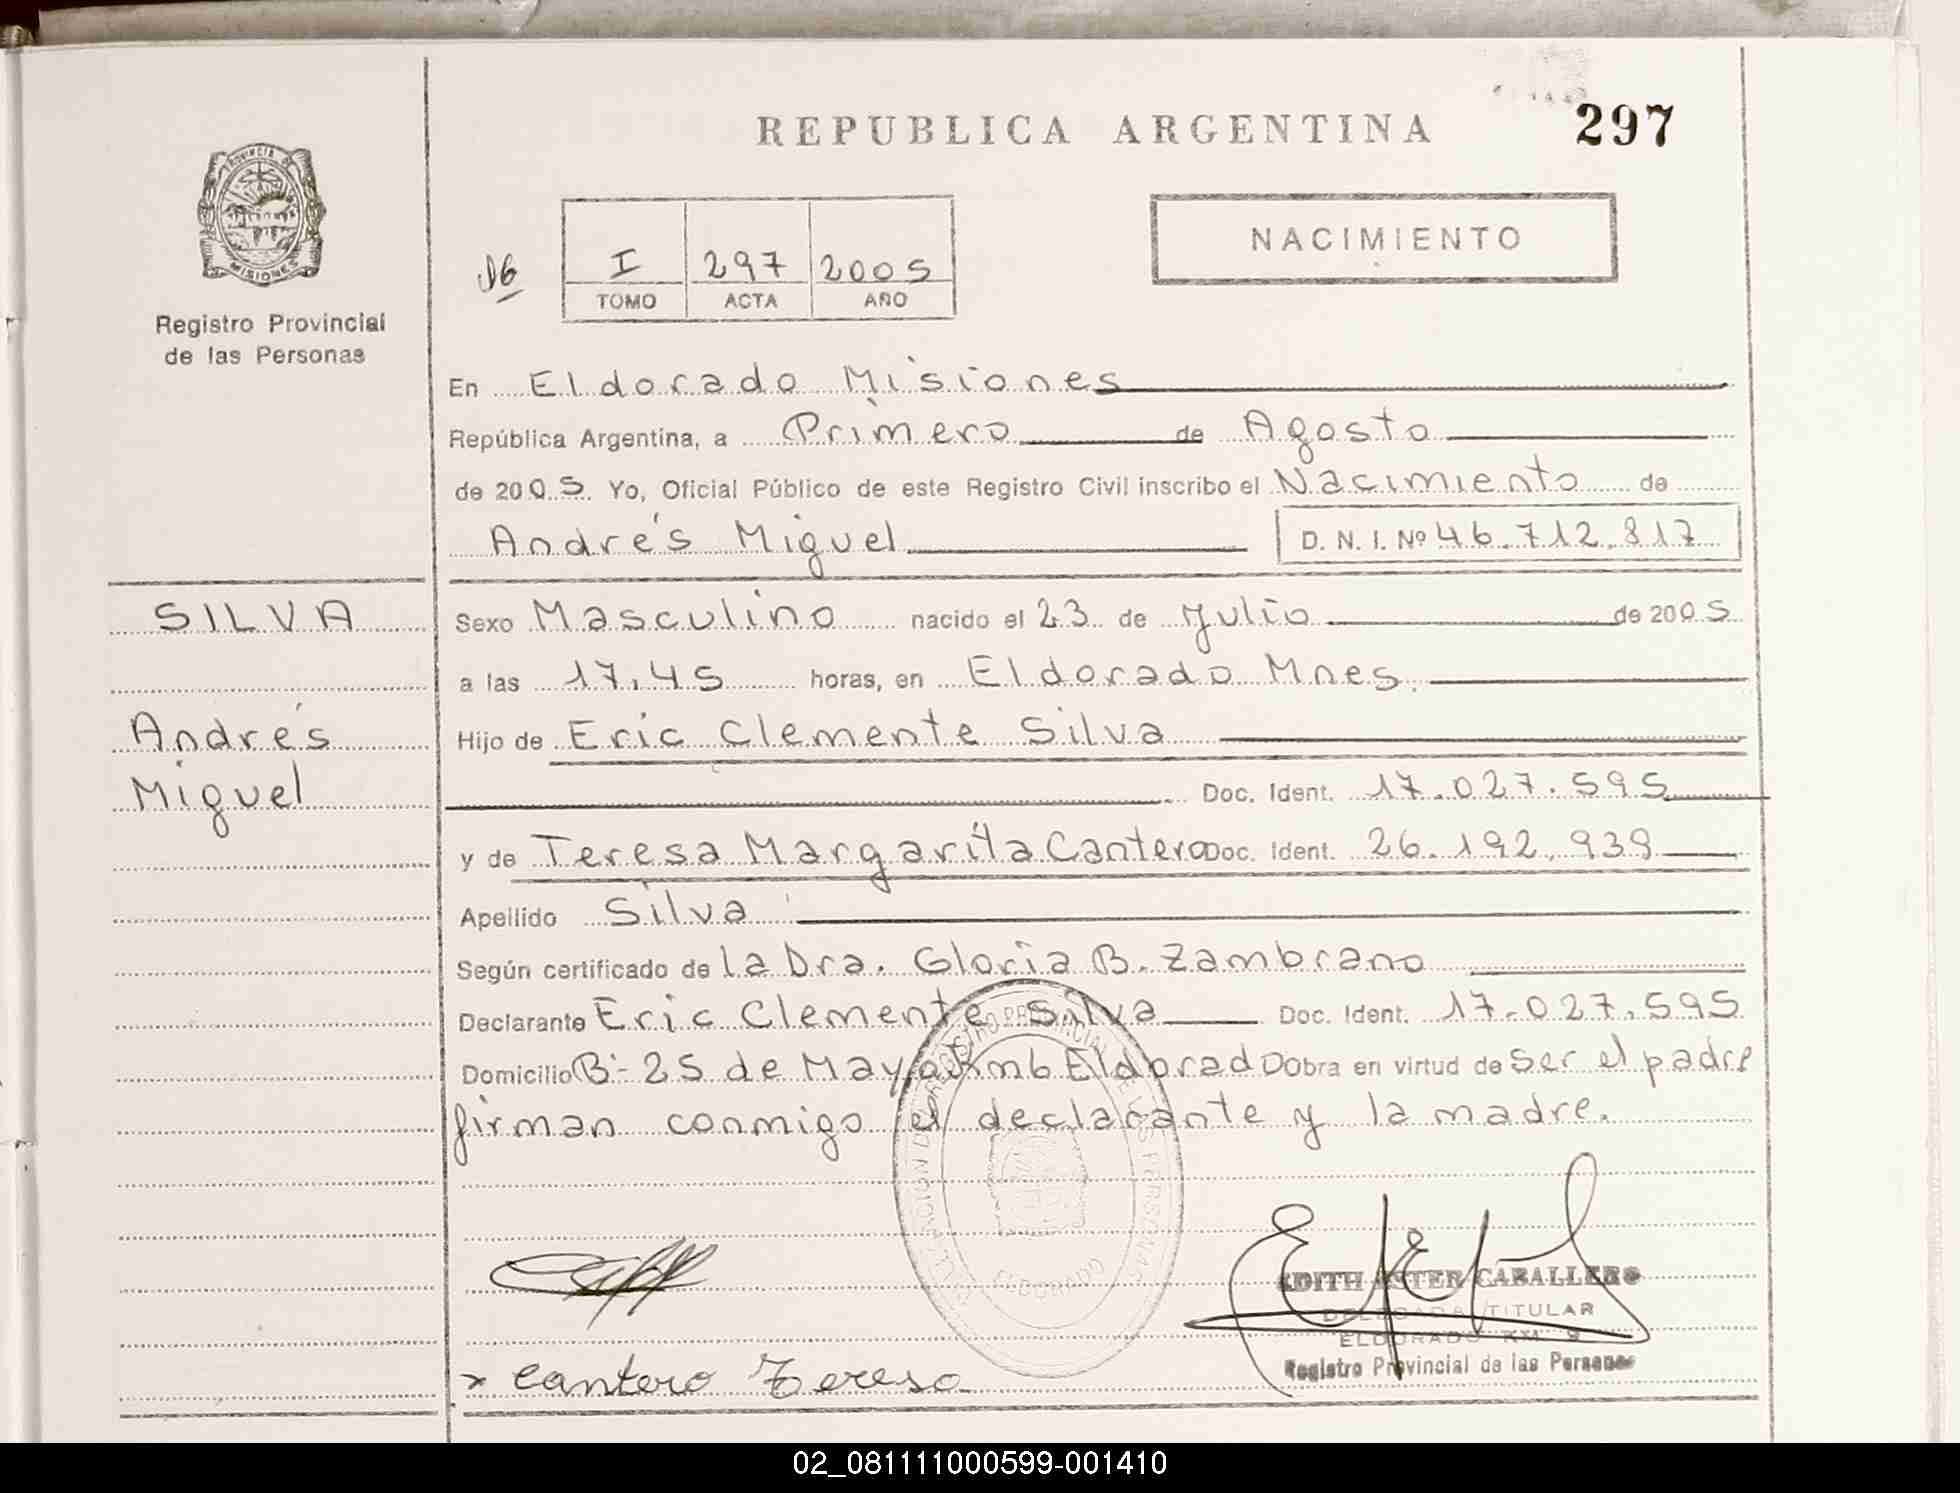 REPUBLICA ARGENTINA 297
PROVINCIA DE
MISIONES
Registro Provincial
de las Personas
NACIMIENTO
I 297 2005
TOMO ACTA AÑO
En Eldorado Misiones
República Argentina, a Primero de Agosto
de 2005 Yo, Oficial Público de este Registro Civil inscribo el Nacimiento de
Andrés Miguel D. N. I. Nº 46.712.817
SILVA
Andrés
Miguel
Sexo Masculino nacido el 23 de Julio de 2005
a las 17,45 horas, en Eldorado Mnes.
Hijo de Eric Clemente Silva
Doc. Ident. 17.027.595
y de Teresa Margarita Cantero Doc. Ident. 26.192.939
Apellido Silva
Según certificado de la Dra. Gloria B. Zambrano
Declarante Eric Clemente Silva Doc. Ident. 17.027.595
Domicilio B- 25 de Mayo Km6 Eldorado Obra en virtud de ser el padre
firman conmigo el declarante y la madre.
ELDORADO
EDITH ESTER CABALLERO
DELEGADA TITULAR
ELDORADO KM 9
Registro Provincial de las Personas
x Cantero Teresa
02_081111000599-001410